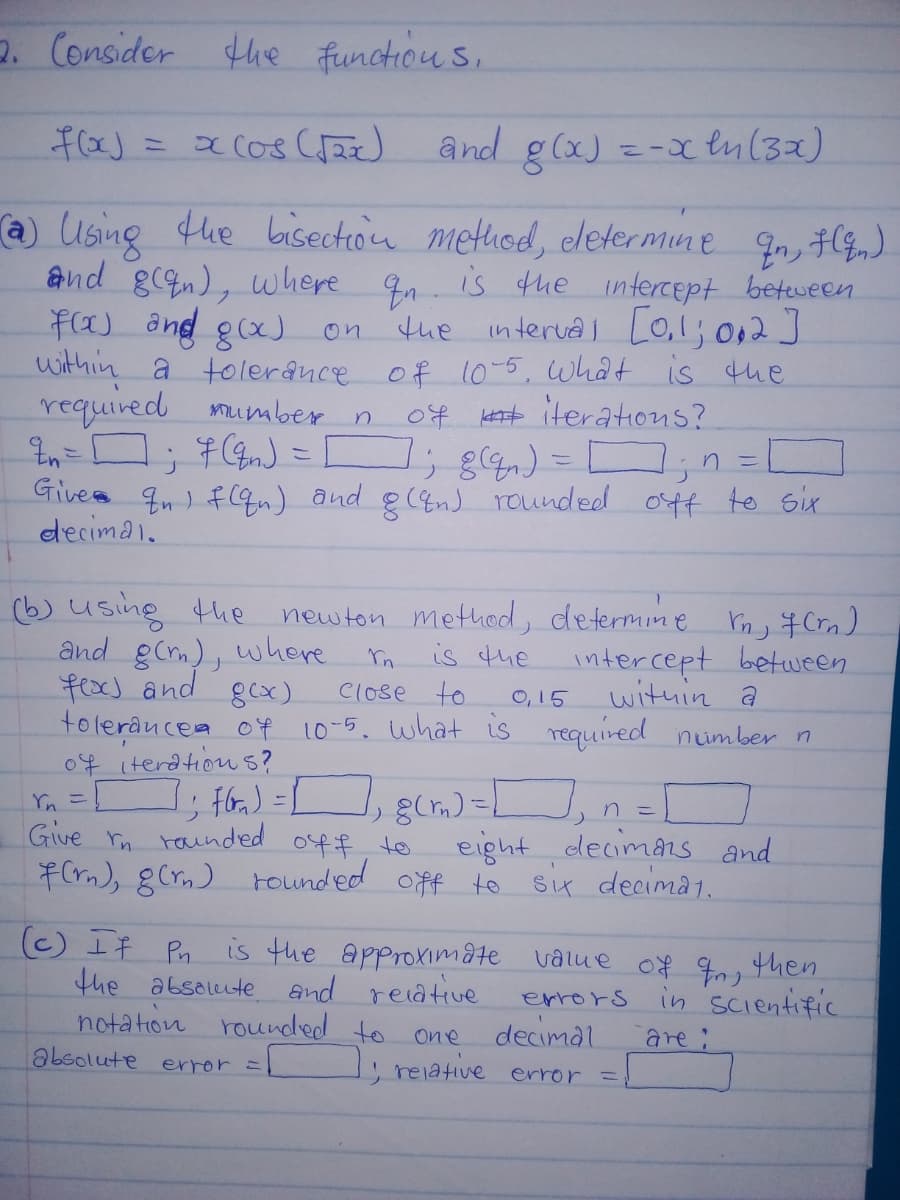 2. Consider the functions.
f(x) = x cos(√2x) and g(x) = -x ln(3x)
(a) Using the bisection method, determine qn, f(qn)
and g(qn), where qn. is the intercept between
f(x) and g(x) on the interval [0,1; 0,2]
within a tolerance of 10-5. What is the
required number n of iterations?
qn = ☐; f(qn) = ☐; g(qn) = ☐; n = ☐
Give qn, f(qn) and g(qn) rounded off to six
decimal.
(b) using the newton method, determine rn, f(rn)
and g(rn), where rn is the intercept between
f(x) and g(x) close to 0,15 within a
tolerance of 10-5. What is required number n
of iterations?
rn = ☐; f(rn) = ☐, g(rn) = ☐, n = ☐
Give rn rounded off to eight decimals and
f(rn), g(rn) rounded off to six decimal.
(c) If Pn is the approximate value of qn, then
the absolute and relative errors in scientific
notation rounded to one decimal are:
absolute error = ☐; relative error = ☐